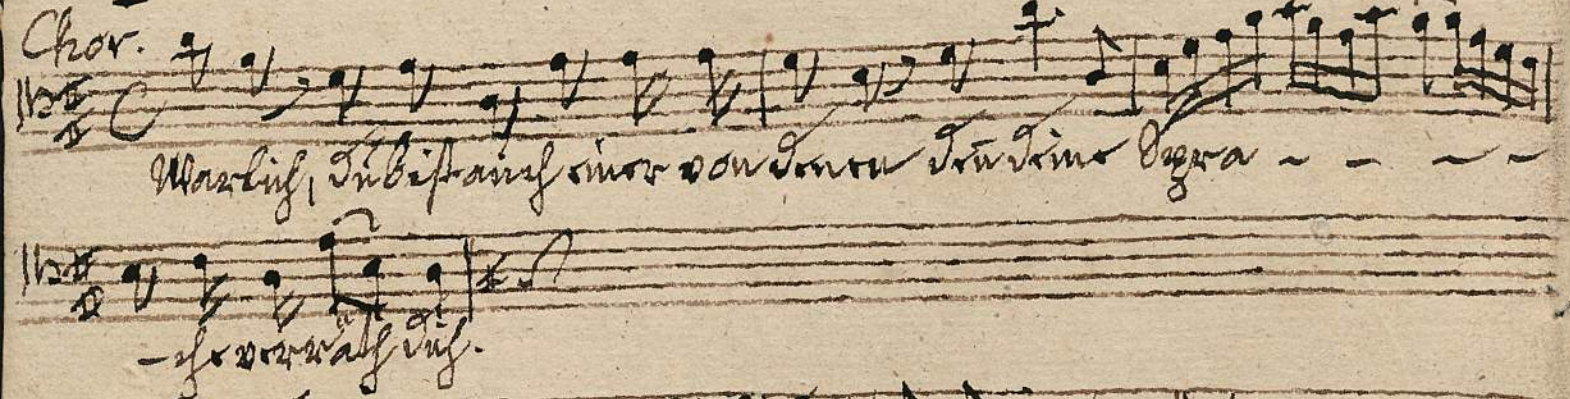 Chor.
Warlich, du bist auch einer von denen den̄ deine Spra - - - -
- che verräth dich.